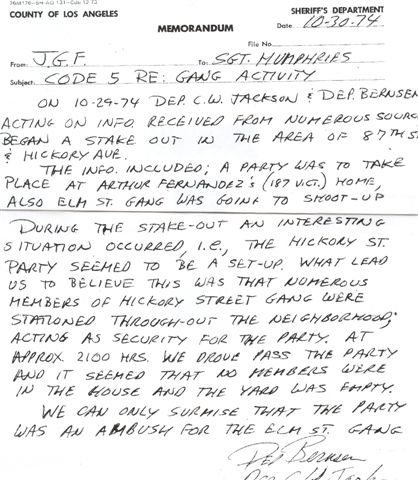 76M176-SH-AD 131-Cub 12-73
COUNTY OF LOS ANGELES
SHERIFF'S DEPARTMENT
MEMORANDUM
Date 10-30-74
File No.
From: J.G.F. To: SGT. HUMPHRIES
Subject: CODE 5 RE: GANG ACTIVITY
ON 10-29-74 DEP. C.W. JACKSON & DEP. BERNSEN
ACTING ON INFO. RECEIVED FROM NUMEROUS SOURC
BEGAN A STAKE OUT IN THE AREA OF 87TH ST
& HICKORY AVE.
THE INFO. INCLUDED; A PARTY WAS TO TAKE
PLACE AT ARTHUR FERNANDEZ'S (187 VICT.) HOME,
ALSO ELM ST. GANG WAS GOING TO SHOOT-UP
DURING THE STAKE-OUT AN INTERESTING
SITUATION OCCURRED, I.E., THE HICKORY ST.
PARTY SEEMED TO BE A SET-UP. WHAT LEAD
US TO BELIEVE THIS WAS THAT NUMEROUS
MEMBERS OF HICKORY STREET GANG WERE
STATIONED THROUGH-OUT THE NEIGHBORHOOD;
ACTING AS SECURITY FOR THE PARTY. AT
APPROX 2100 HRS. WE DROVE PASS THE PARTY
AND IT SEEMED THAT NO MEMBERS WERE
IN THE HOUSE AND THE YARD WAS EMPTY.
WE CAN ONLY SURMISE THAT THE PARTY
WAS AN AMBUSH FOR THE ELM ST. GANG
Dep Bernsen